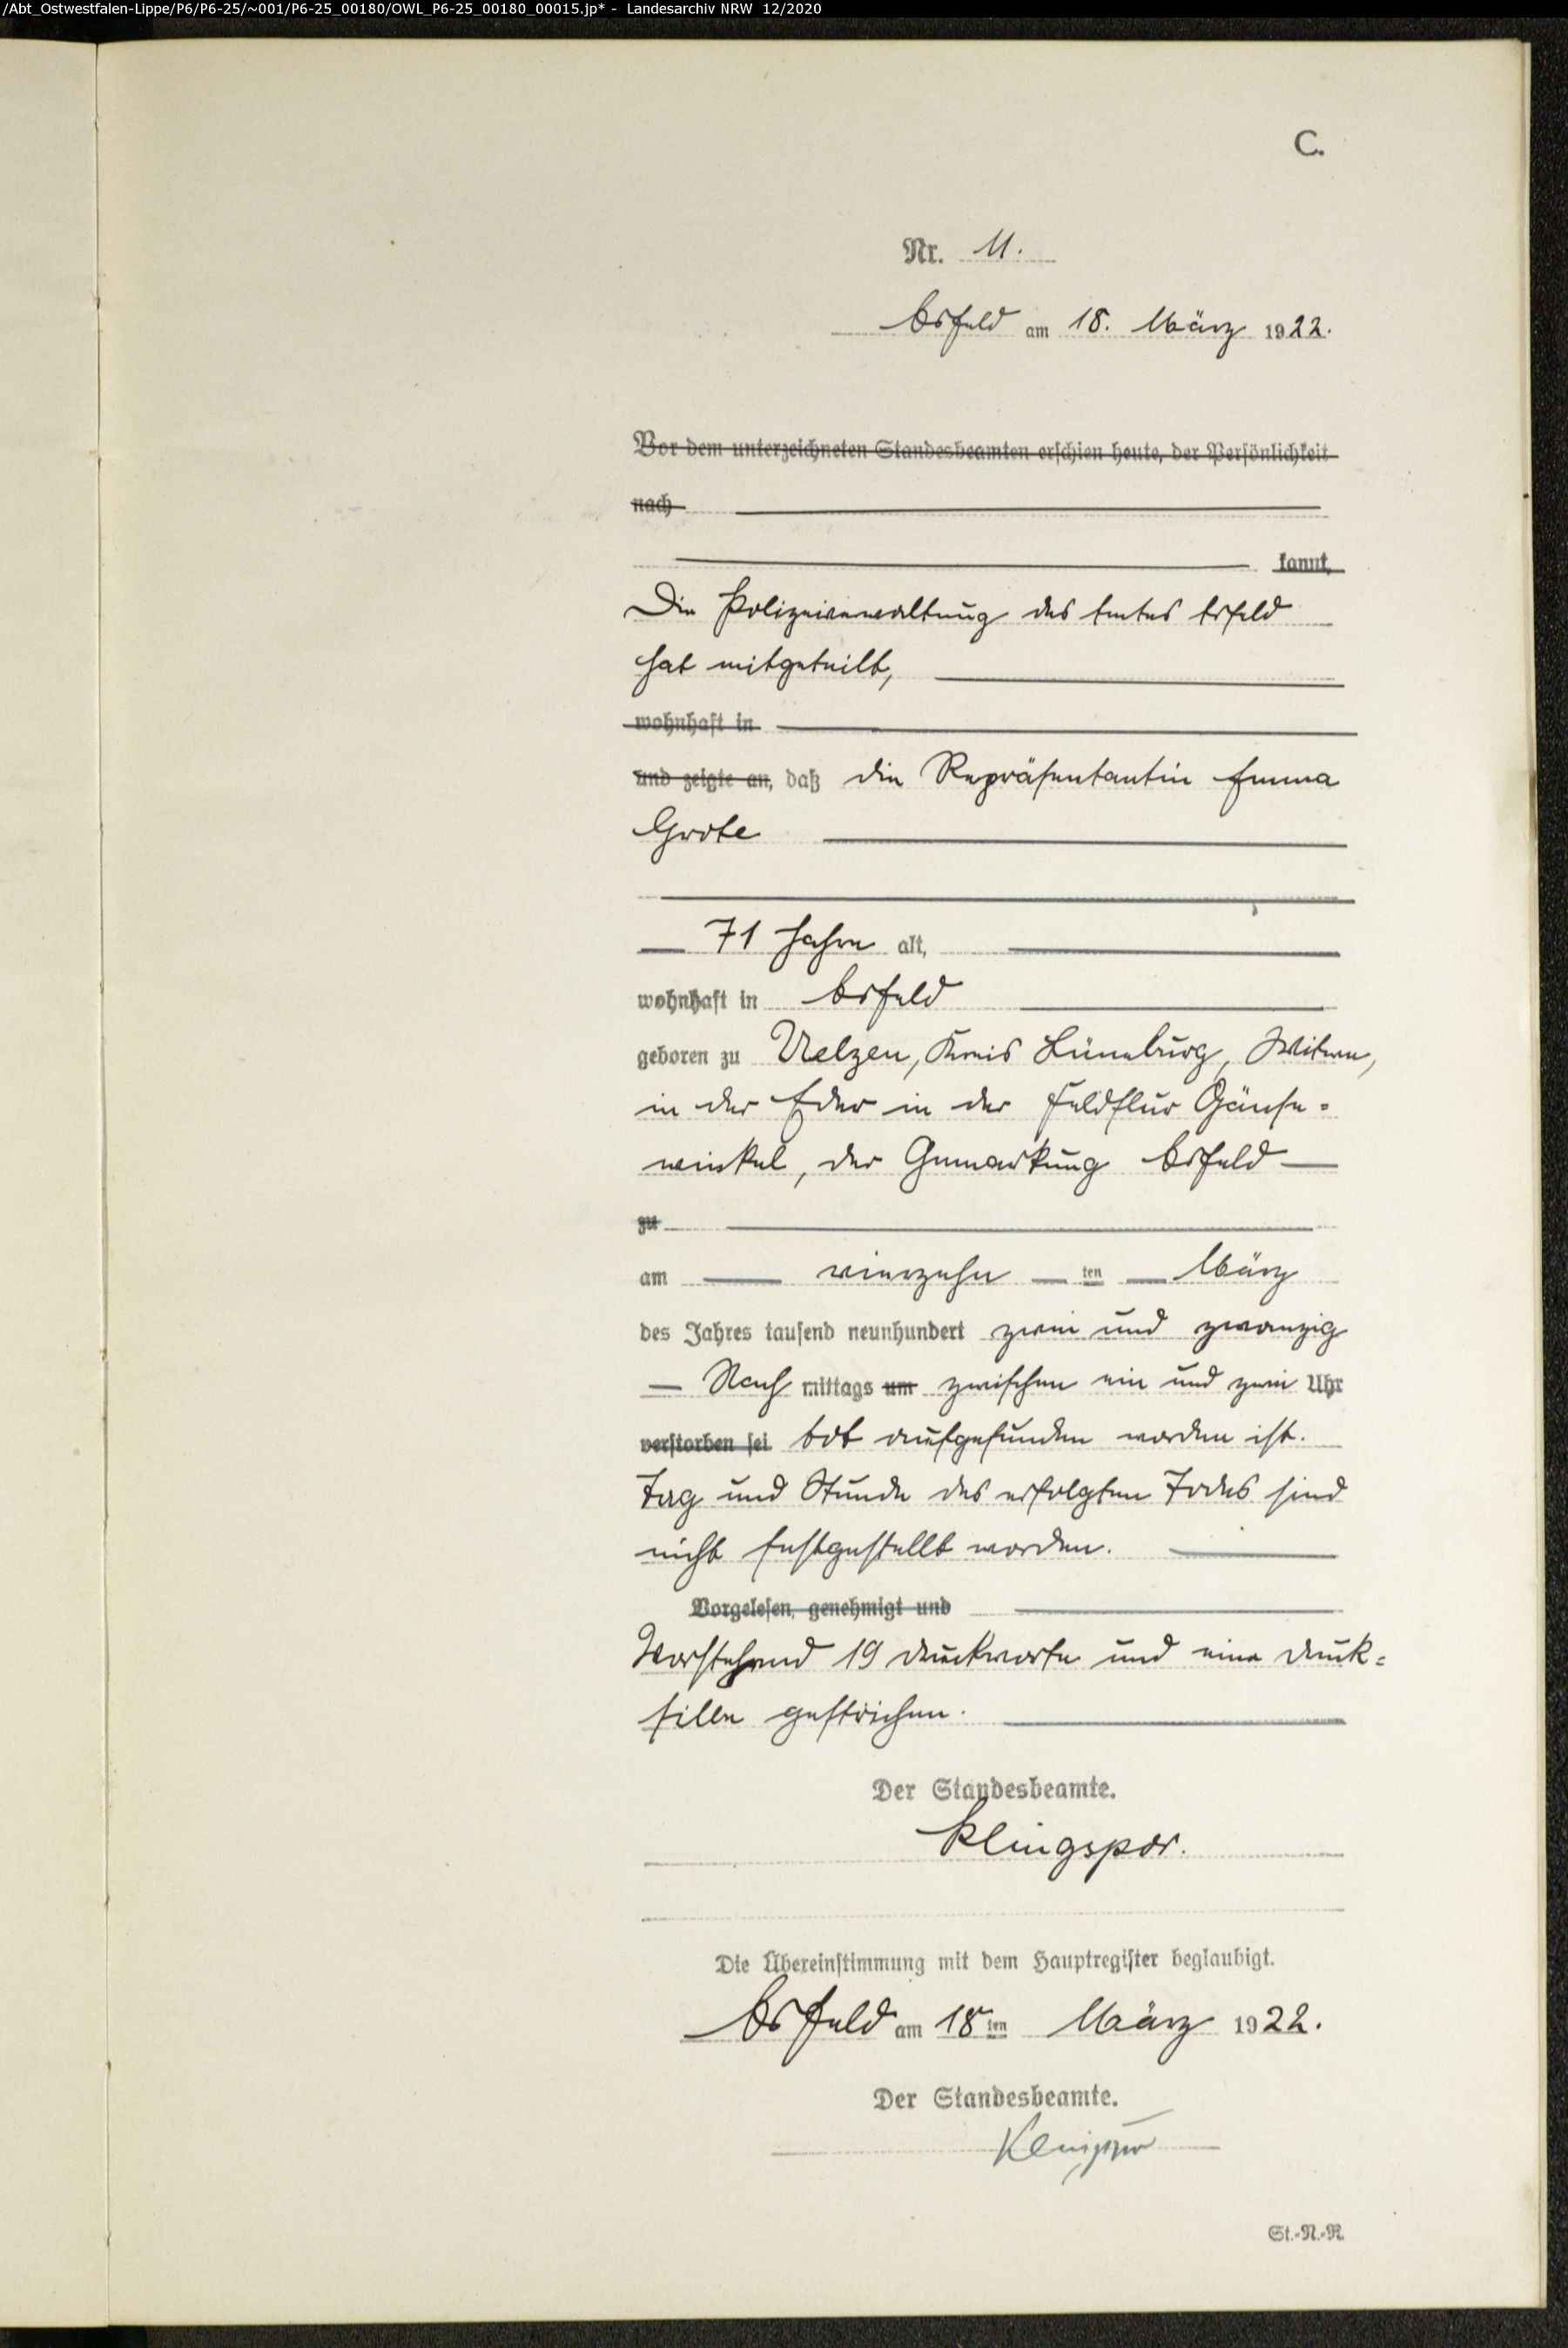 /Abt_Ostwestfalen-Lippe/P6/P6-25/~001/P6-25_00180/OWL_P6-25_00180_00015.jp* - Landesarchiv NRW 12/2020
C.
Nr. 11.
Arfeld am 18. März 1922.
Vor dem unterzeichneten Standesbeamten erschien heute, der Persönlichkeit
nach
kannt,
Die Polizeiverwaltung des Amtes Arfeld
hat mitgeteilt,
wohnhaft in
und zeigte an, daß die Repräsentantin Emma
Grote
71 Jahre alt,
wohnhaft in Arfeld
geboren zu Uelzen, Kreis Lüneburg, Witwe,
in der Eder in der Feldflur Gänse-
winkel, der Gemarkung Arfeld
zu
am vierzehn ten März
des Jahres tausend neunhundert zwei und zwanzig
Nach mittags um zwischen ein und zwei Uhr
verstorben sei tot aufgefunden worden ist.
Tag und Stunde des erfolgten Todes sind
nicht festgestellt worden.
Vorgelesen, genehmigt und
Vorstehend 19 Druckworte und eine Druck-
silbe gestrichen.
Der Standesbeamte.
Klingspor.
Die Übereinstimmung mit dem Hauptregister beglaubigt.
Arfeld am 18 ten März 1922.
Der Standesbeamte.
Klingspor
St.-N.-R.